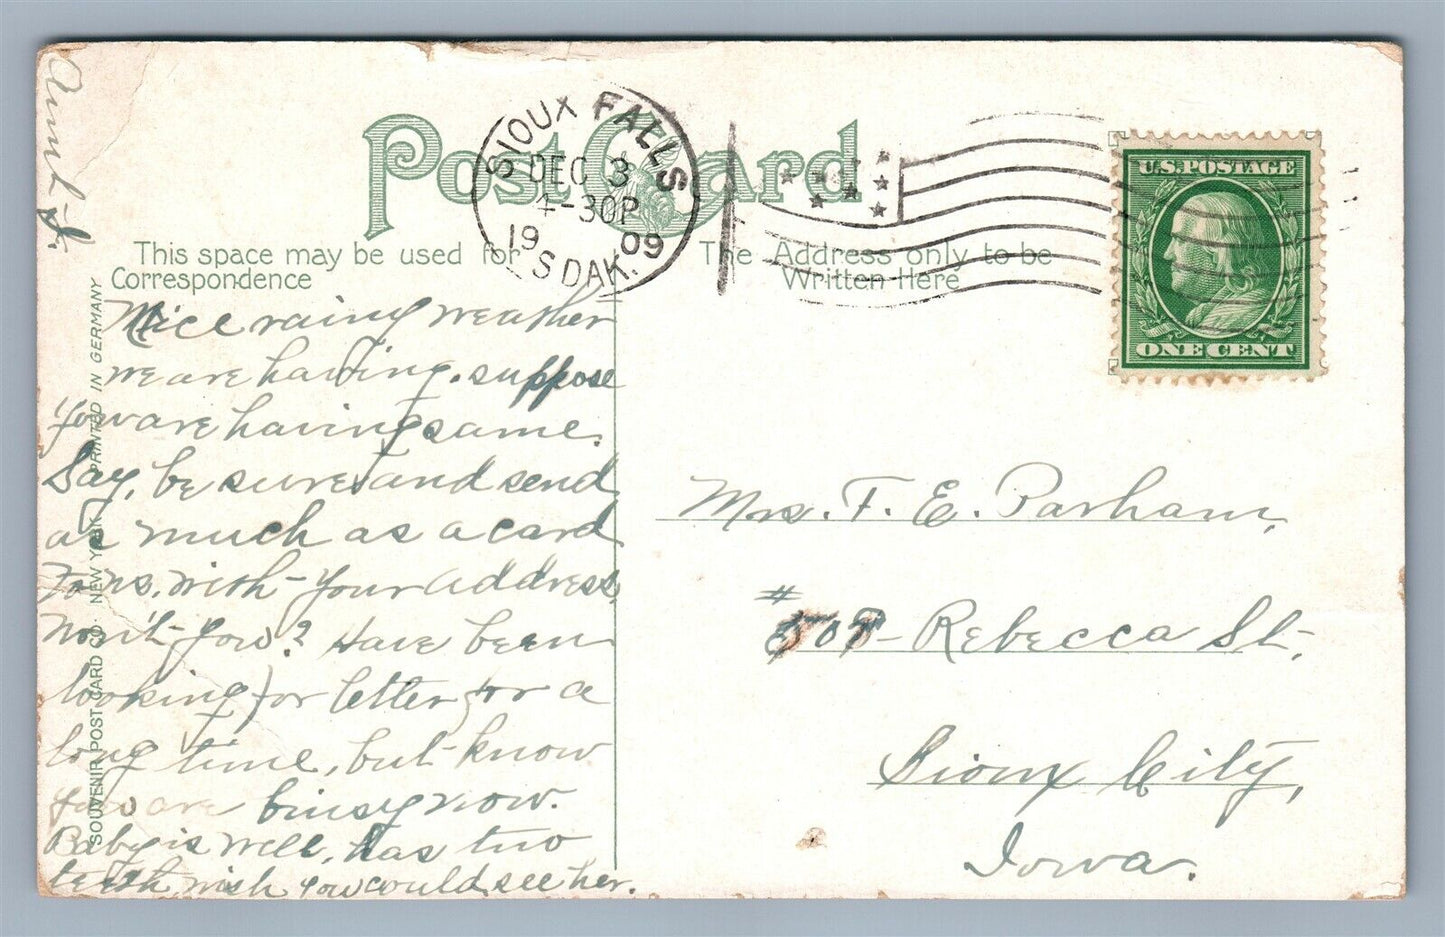 Post Card
SIOUX FALLS
DEC 3
4-30P
1909
S DAK.
U.S. POSTAGE
ONE CENT
This space may be used for
Correspondence
The Address only to be
Written Here
Nice rainy weather
we are having. suppose
you are having same.
Say, be sure and send
as much as a card
to us, with your address,
won't you? Have been
looking for letter for a
long time, but know
you are buisy now.
Baby is well, has two
teeth, wish you would see her.
Aunt J.
SOUVENIR POST CARD CO. NEW YORK PRINTED IN GERMANY
Mrs. F. E. Parham,
# 508 Rebecca St.,
Sioux City,
Iowa.